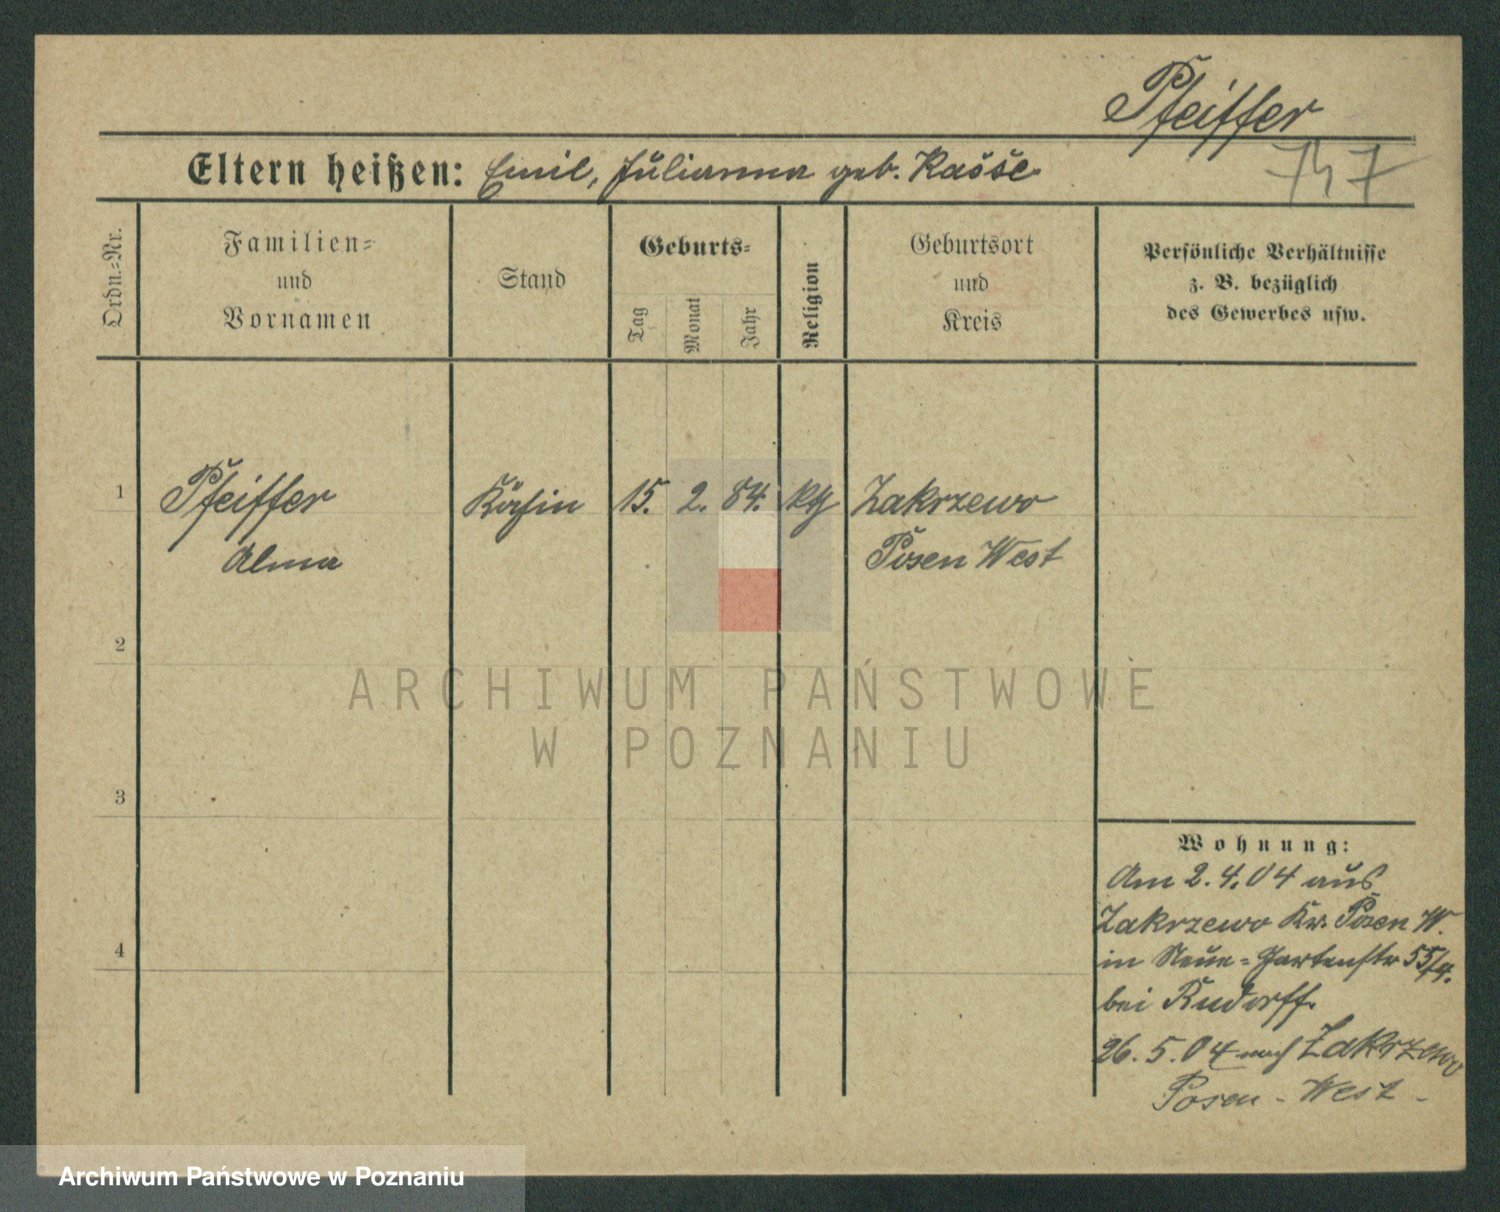 Pfeiffer
747
Eltern heißen: Emil, Julianna geb. Kasse
Ordn.-Nr.
Familien-
und
Vornamen
Stand
Geburts-
Tag
Monat
Jahr
Religion
Geburtsort
und
Kreis
Persönliche Verhältnisse
z. B. bezüglich
des Gewerbes usw.
1 Pfeiffer Köchin 15. 2. 84. kth Zakrzewo
Alma Posen West
2
3
4
ARCHIWUM PAŃSTWOWE
W POZNANIU
Wohnung:
Am 2.4.04 aus
Zakrzewo Kr. Posen W.
in Neue-Gartenstr 55/4.
bei Rudorff.
26.5.04 nach Zakrzewo
Posen-West-
Archiwum Państwowe w Poznaniu